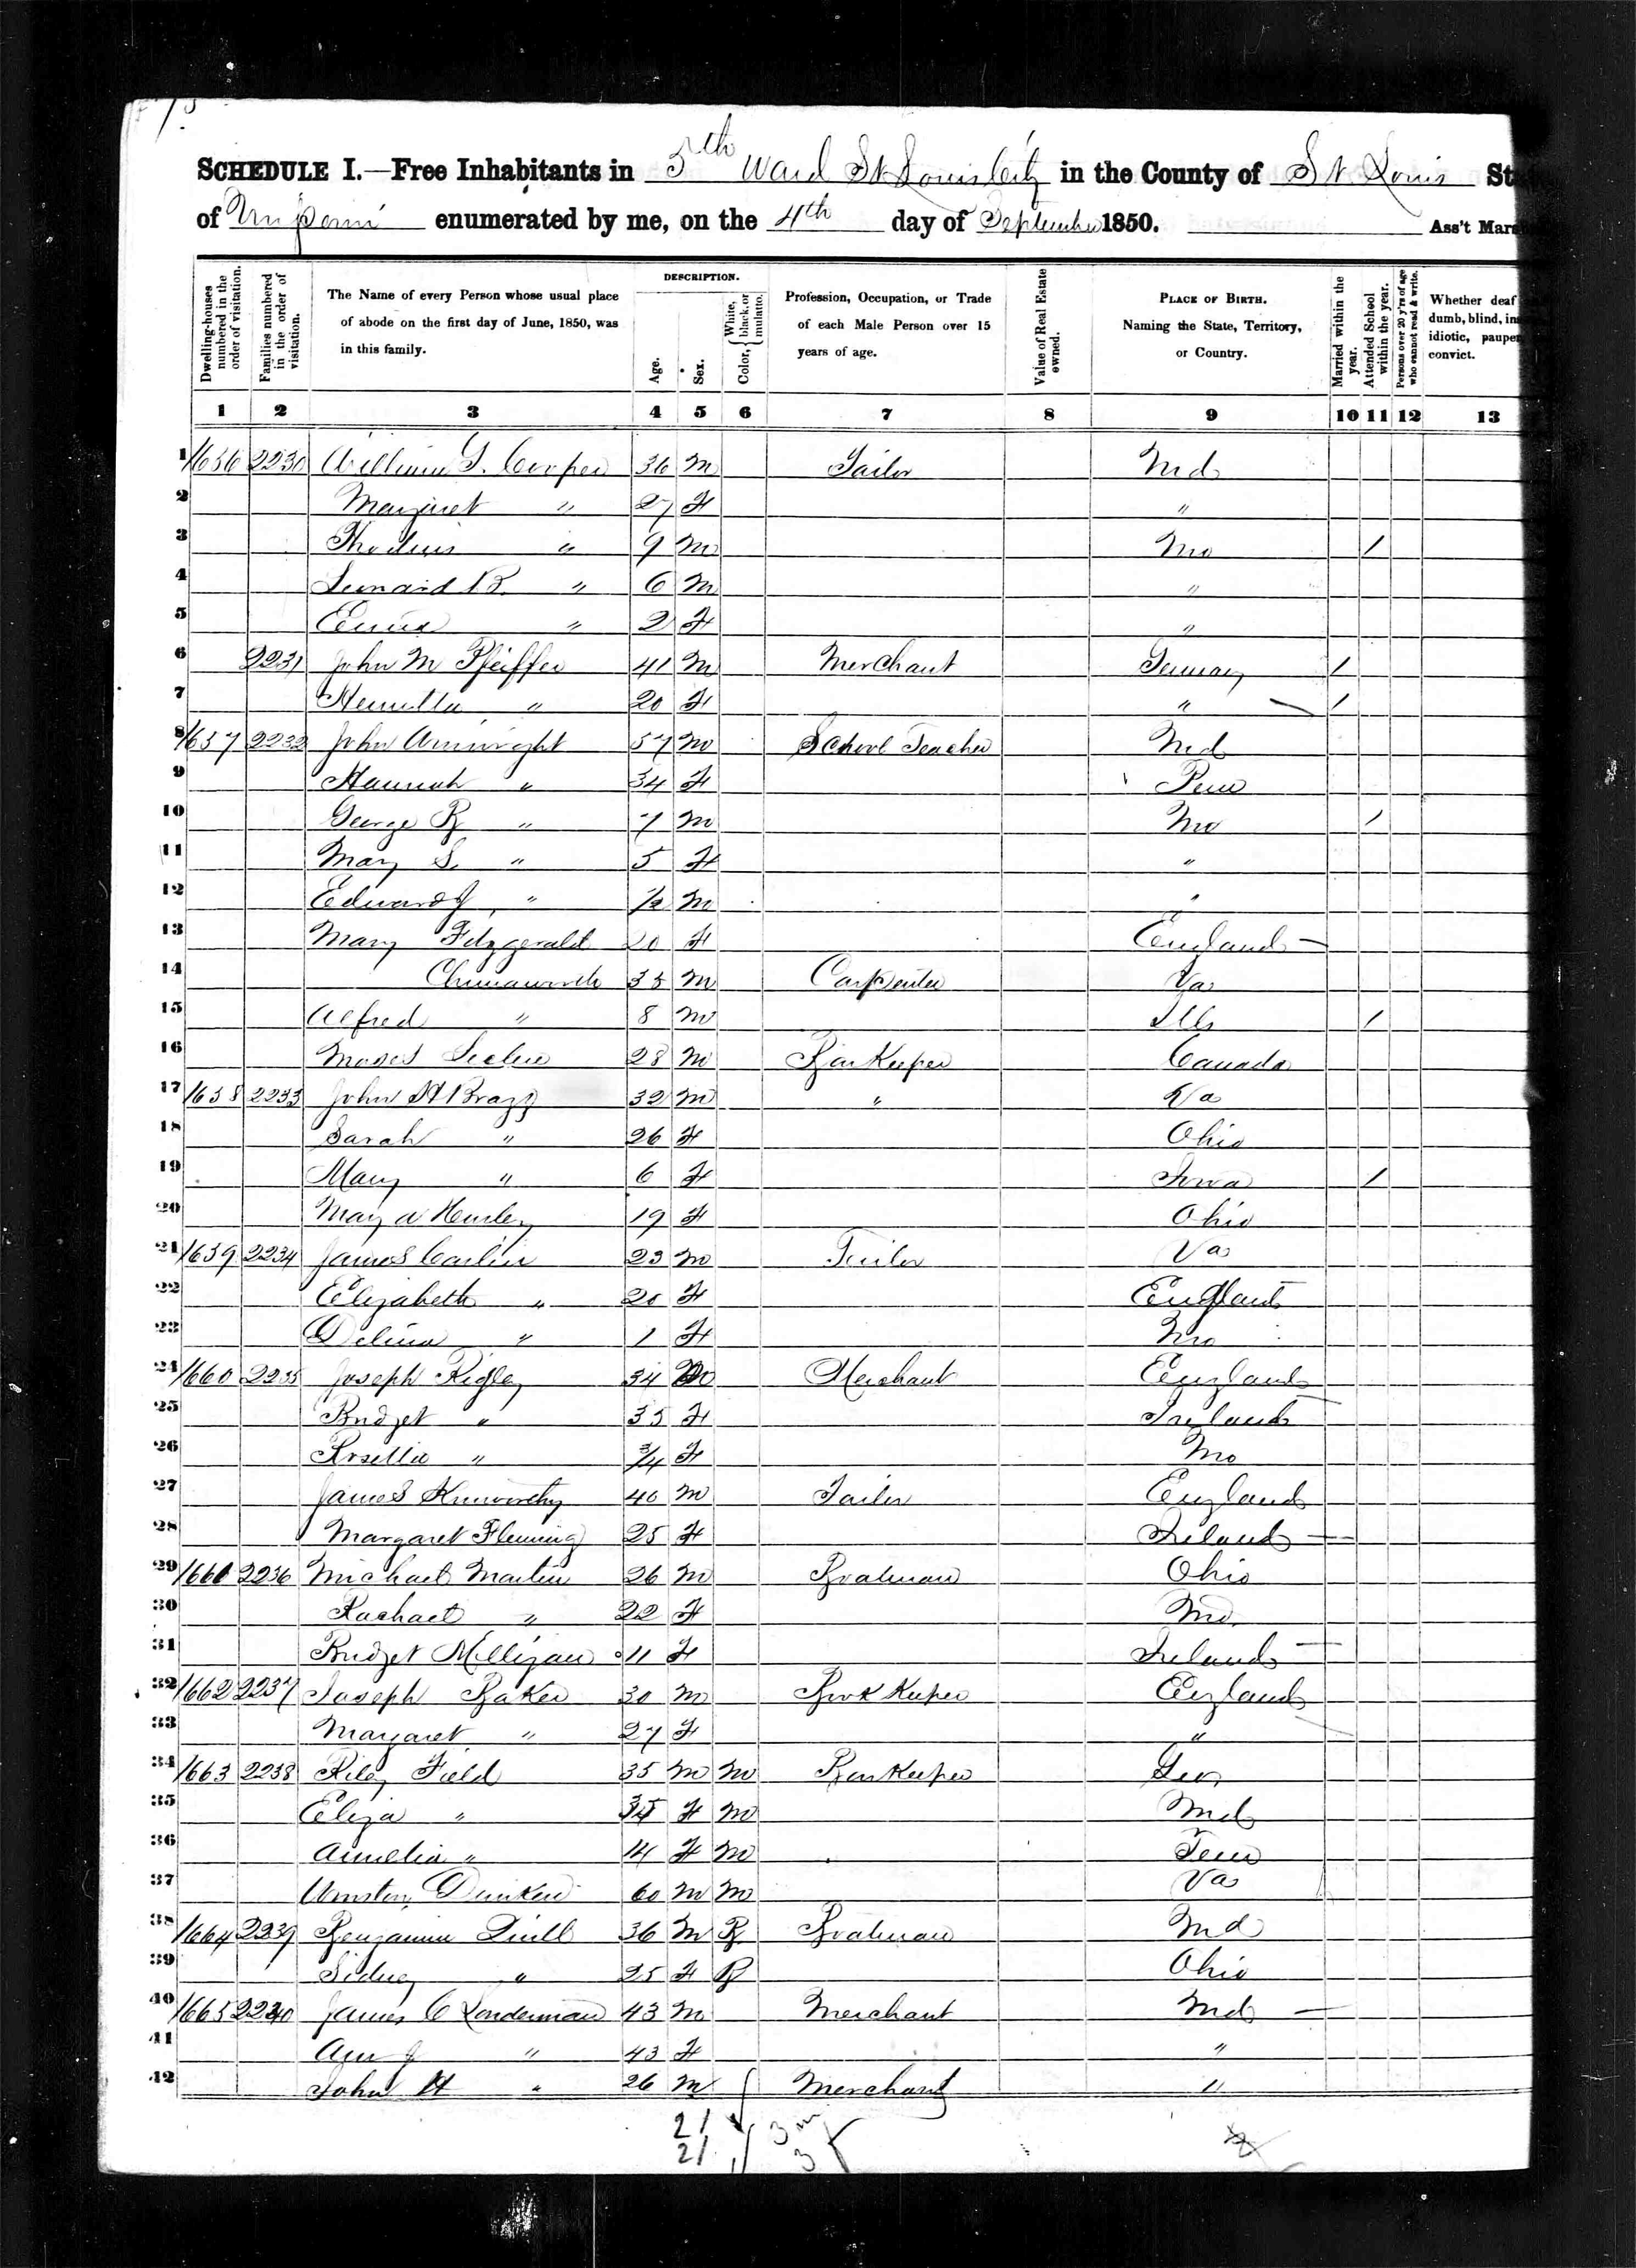 SCHEDULE I.—Free Inhabitants in 5th Ward St Louis City in the County of St Louis St
of Missouri enumerated by me, on the 4th day of September 1850. Ass't Mars
Dwelling-houses numbered in the order of visitation.
Families numbered in the order of visitation.
The Name of every Person whose usual place of abode on the first day of June, 1850, was in this family.
DESCRIPTION.
Age.
Sex.
Color, { White, black, or mulatto.
Profession, Occupation, or Trade of each Male Person over 15 years of age.
Value of Real Estate owned.
PLACE OF BIRTH. Naming the State, Territory, or Country.
Married within the year.
Attended School within the year.
Persons over 20 y'rs of age who cannot read & write.
Whether deaf dumb, blind, in idiotic, pauper convict.
1 2 3 4 5 6 7 8 9 10 11 12 13
1 1656 2230 William T. Cooper 36 M Tailor Md
2 Margaret " 27 F "
3 " 9 M Mo /
4 Leonard B. " 6 M "
5 Emma " 2 F "
6 2231 John M Pfeiffer 41 M Merchant Germany /
7 " 20 F " /
8 1657 2232 John Armwright 57 M School Teacher Md
9 Hannah " 34 F Penn
10 George R " 7 M Mo /
11 Mary S. " 5 F "
12 Edward J " 1/2 M "
13 Mary Fitzgerald 20 F England
14 35 M Carpenter Va
15 Alfred " 8 M Ills /
16 Moses 28 M Bar Keeper Canada
17 1658 2233 John H Bragg 32 M " Va
18 Sarah " 26 F Ohio
19 Mary " 6 F Iowa /
20 Mary A Hensley 19 F Ohio
21 1659 2234 James Carlin 23 M Tailor Va
22 Elizabeth " 20 F England
23 Delina " 1 F Mo
24 1660 2235 Joseph Rigley 34 M Merchant England
25 Bridget " 35 F Ireland
26 Rosella " 3/4 F Mo
27 James Kenworthy 40 M Tailor England
28 Margaret Fleming 25 F Ireland
29 1661 2236 Michael Martin 26 M Boatman Ohio
30 Rachael " 22 F Mo
31 Bridget Milligan 11 F Ireland
32 1662 2237 Joseph Baker 30 M Book Keeper England
33 Margaret " 27 F "
34 1663 2238 Riley Field 35 M M Bar Keeper Geo
35 Eliza " F M Md
36 Amelia " 14 F M Tenn
37 60 M M Va
38 1664 2239 Benjamin 36 M B Boatman Md
39 Sidney " 25 F B Ohio
40 1665 2240 James C Londerman 43 M Merchant Md
41 Ann J " 43 F "
42 John H " 26 M Merchant "
21 3 m
21 3